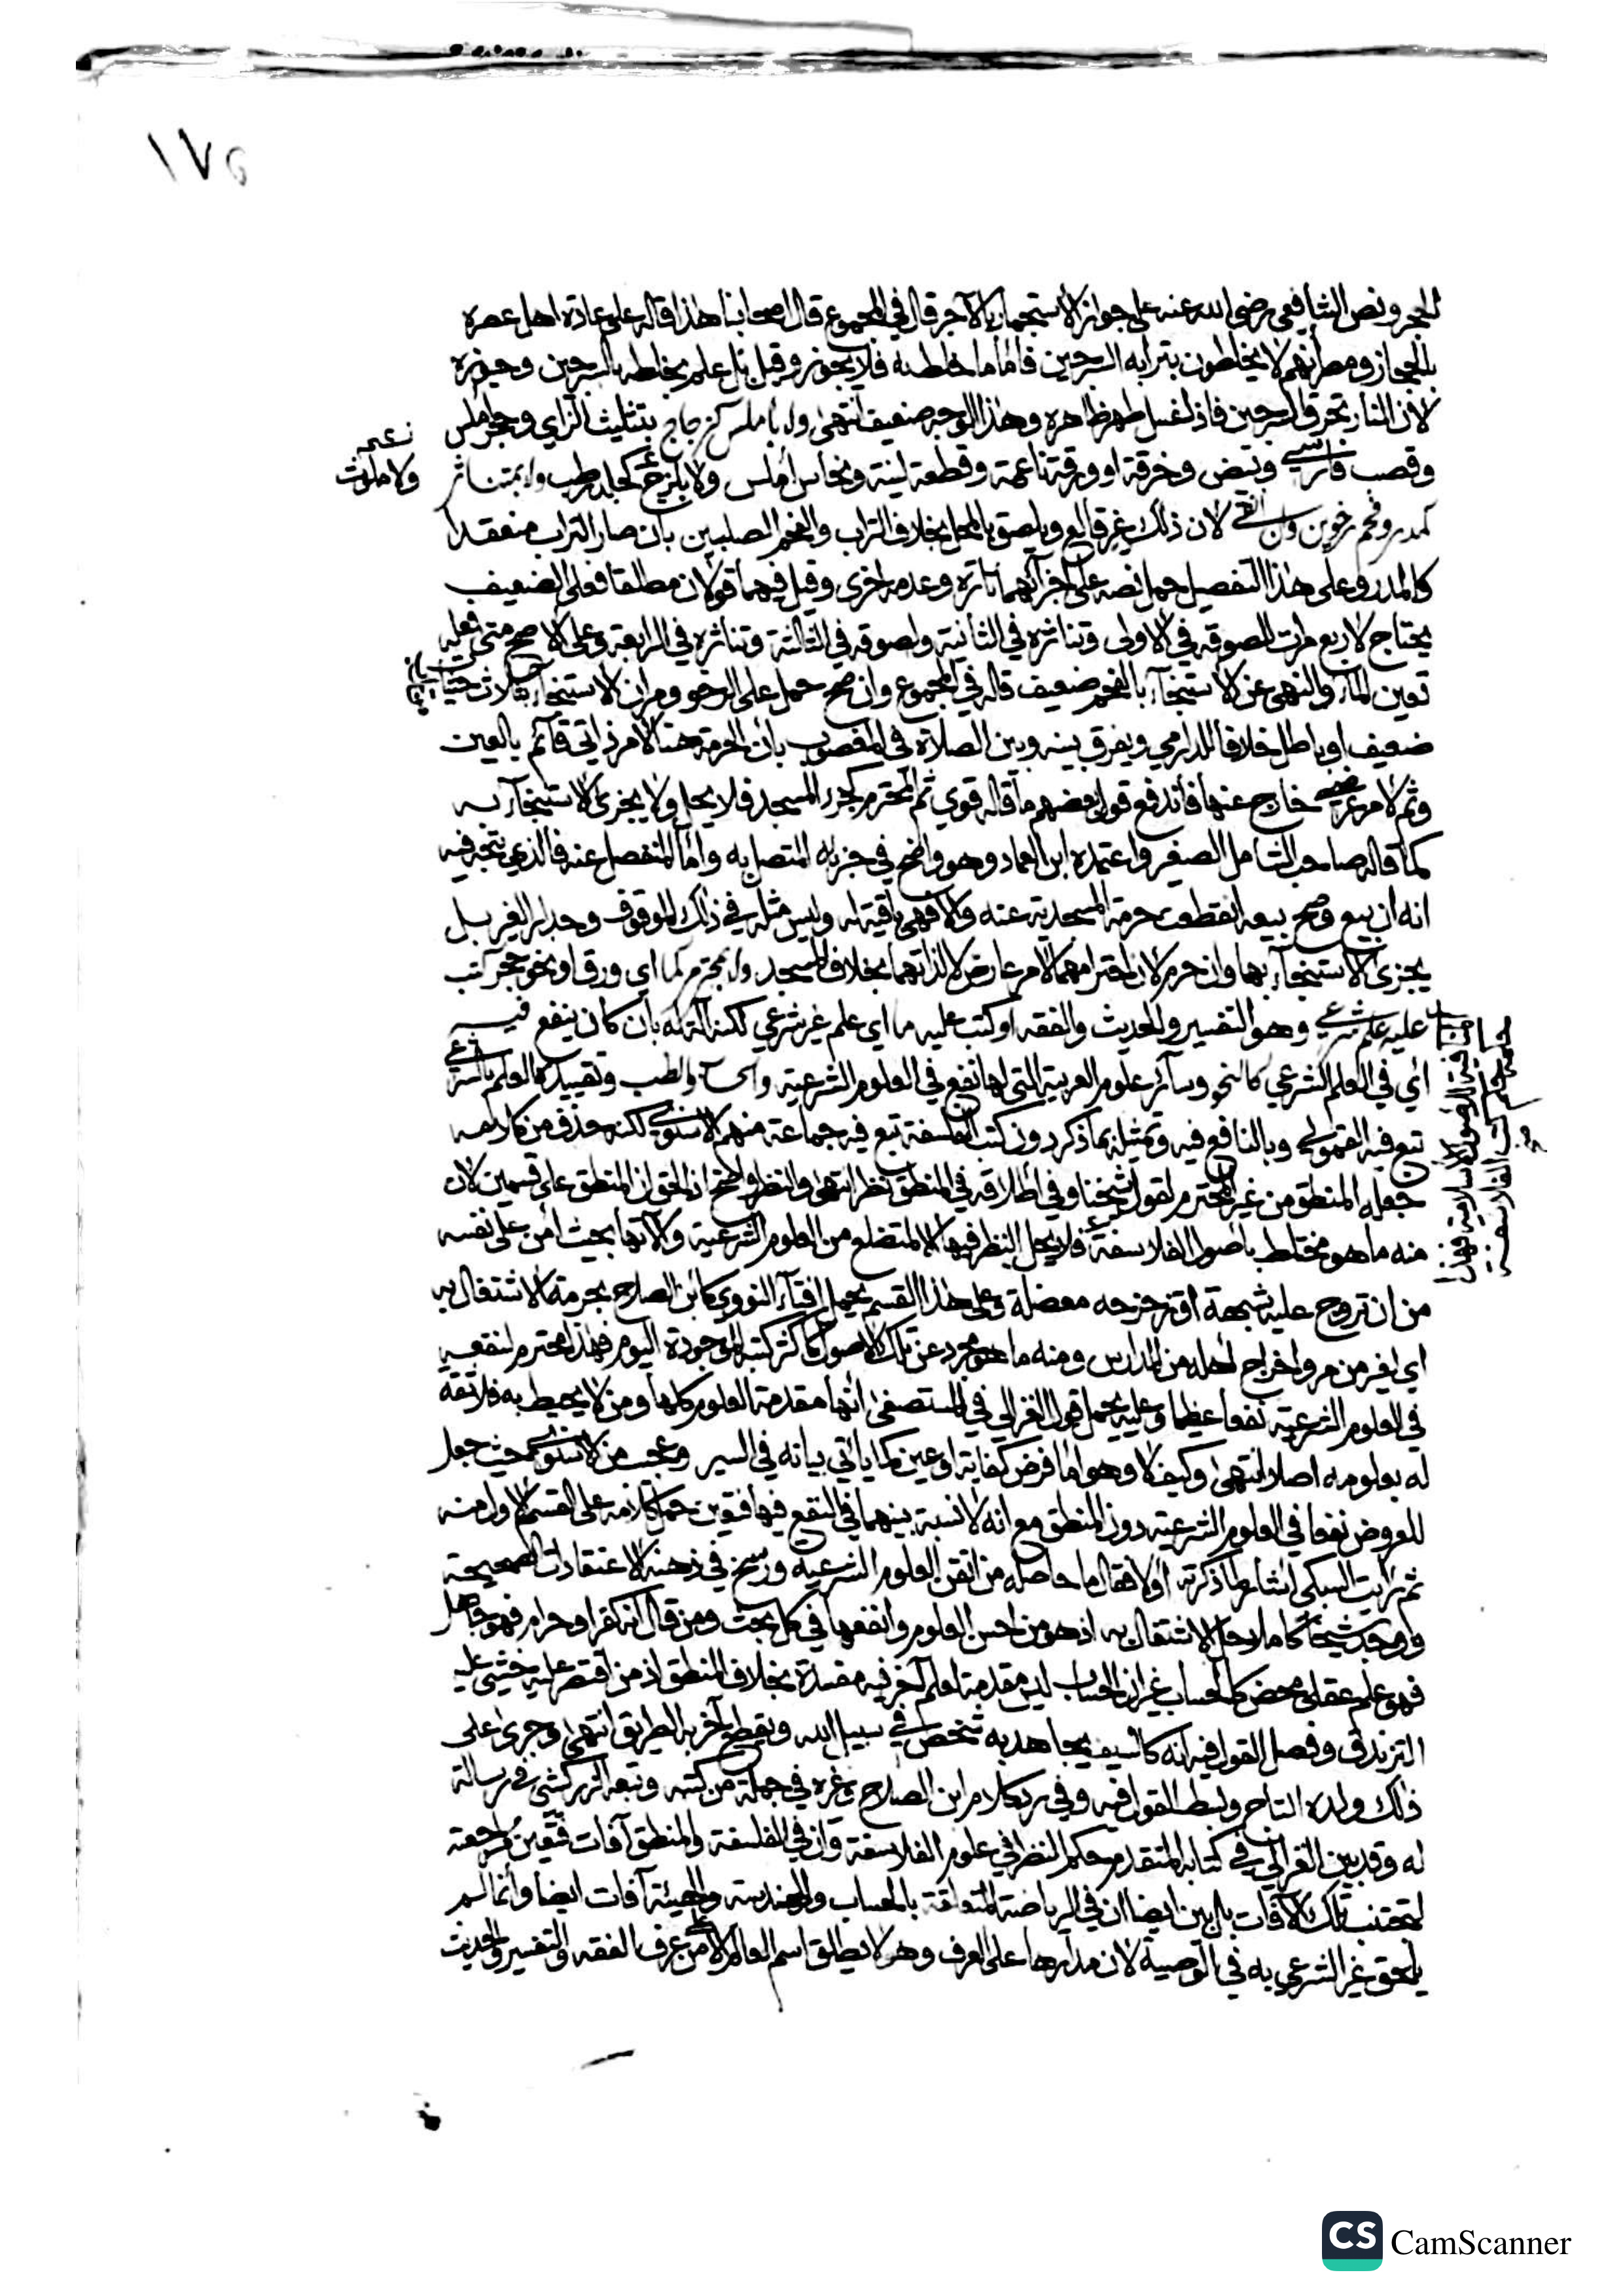 ١٧٥
للحجر ونص الشافعي رضي الله عنه على جواز الاستجمار بالآجر قال في المجموع قال اصحابنا هذا قاله على عادة اهل عصره
بالحجاز ومصر أنهم لا يخلطون بترابه السرجين فأما ما خلط به فلا يجوز وقيل بل علم بخلطه بالسرجين وجوزه
لأن النار تحرق السرجين فاذا غسل طهر ظاهره وهذا الوجه ضعيف انتهى ولا باملس كزجاج بتثليث الزاي وحجر املس
وقصب فارسي وخرقة او ورقة ناعمة وقطعة لينة ونحاس أملس ولا بلزج كجلد رطب ولا بمتناثر
كمدر وفحم رخوين لان ذلك غير قالع ويلصق بالمحل بخلاف التراب والفحم الصلبين بأن صار التراب منعقدا
كالمدر وعلى هذا التفصيل حمل نصه على اجزائهما تارة وعدمه اخرى وقيل فيهما قولان مطلقا فعلى الضعيف
يحتاج لاربع مرات للصوقه في الاولى وتناثره في الثانية ولصوقه في الثالثة وتناثره في الرابعة وعلى الاصح متى فعله
تعين الماء والنهي عن الاستنجاء بالفحم ضعيف قاله في المجموع وان صح حمل على الرخو ومر ان الاستنجاء بثلاث حثيات
ضعيف او باطل خلافا للدارمي ويفرق بينه وبين الصلاة في المغصوب بأن الحرمة هنا لامر ذاتي قائم بالعين
وثم لامر خارج عنها فأندفع قول بعضهم ما قاله قوي ثم المحترم كجزء المسجد فلا يحل ولا يجزئ الاستنجاء به
كما قاله صاحب الشامل الصغير واعتمده ابن العماد وهو واضح في جزئه المتصل به وأما المنفصل عنه فالذي يتجه فيه
انه ان بيع وصح بيعه انقطعت حرمة المسجدية عنه والا فهي باقية له وليس مثله في ذلك الموقوف وجدار الغير بل
يجزئ الاستنجاء بهما وان حرم لان احترامهما لامر عارض لا لذاتهما بخلاف المسجد ولا بمحترم كما اي ورق او نحو حجر كتب
عليه علم شرعي وهو التفسير والحديث والفقه او كتب عليه ما اي علم غير شرعي لكنه آلة له بأن كان ينفع فيه
اي في العلم الشرعي كالنحو وسائر علوم العربية التي لها نفع في العلوم الشرعية والحساب والطب وتقييده العلم بالشرعي
تبع فيه القمولي وبالنافع فيه وتمثيله بما ذكر دون كتب الفلسفة تبع فيه جماعة منهم الاسنوي لكنه حذف من كلامه
جعله المنطق من غير المحترم لقول شيخنا وفي اطلاقه في المنطق نظر انتهى والنظر واضح اذ الحق ان المنطق على قسمين لان
منه ما هو مختلط بأصول الفلاسفة فلا يحل النظر فيها الا لمتضلع من العلوم الشرعية وآلاتها بحيث أمن على نفسه
من ان تروج عليه شبهة او تزحزحه معضلة وعلى هذا القسم يحمل افتاء النووي كابن الصلاح بحرمة الاشتغال به
اي لغير من مر واخراج اهله من المدارس ومنه ما هو مجرد عن تلك الاصول كأكثر كتبه الموجودة اليوم فهذا محترم لنفعه
في العلوم الشرعية نفعا عظيما وعليه يحمل قول الغزالي في المستصفى انها مقدمة العلوم كلها ومن لا يحيط به فلا ثقة
له بعلومه اصلا انتهى وكيف لا وهو اما فرض كفاية او عين كما يأتي بيانه في السير وعجب من الاسنوي حيث جعل
للعروض نفعا في العلوم الشرعية دون المنطق مع انه لا نسبة بينهما في النفع فيها فتعين حمل كلامه على القسم الاول منه
ثم رايت السبكي اشار لما ذكرته اولا فقال ما حاصله من اتقن العلوم الشرعية ورسخ في ذهنه الاعتقادات الصحيحة
ووجد شيخا كاملا حل الاشتغال به اذ هو من احسن العلوم وانفعها في كل بحث ومن قال انه كفر او حرام فهو جاهل
فهو علم عقلي محض كالحساب غير ان الحساب ليس مقدمة لعلم آخر فيه مفسدة بخلاف المنطق اذ من اقتصر عليه خشي عليه
التزندق وفصل القول فيه انه كالسيف يجاهد به شخص في سبيل الله ويقطع آخر به الطريق انتهى وجرى على
ذلك ولده التاج وبسط القول فيه وفي رد كلام ابن الصلاح وغيره في جملة من كتبه وتبعه الزركشي في رسالة
له وقد بين الغزالي في كتابه المتقدم حكم النظر في علوم الفلاسفة وان في الفلسفة والمنطق آفات فتعين مراجعته
لتجتنب تلك الآفات بل بين ايضا ان في الرياضة المتعلقة بالحساب والهندسة والهيئة آفات ايضا وأنما لم
يلحق غير الشرعي به في الوصية لان مدارها على العرف وهو لا يطلق اسم العالم الا من عرف الفقه والتفسير والحديث
ولا ملوث